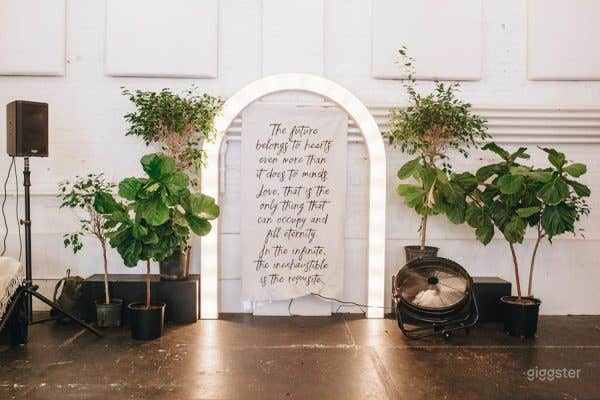 The future
belongs to hearts
even more than
it does to minds.
Love, that is the
only thing that
can occupy and
fill eternity.
In the infinite,
the inexhaustible
is the requisite.
giggster